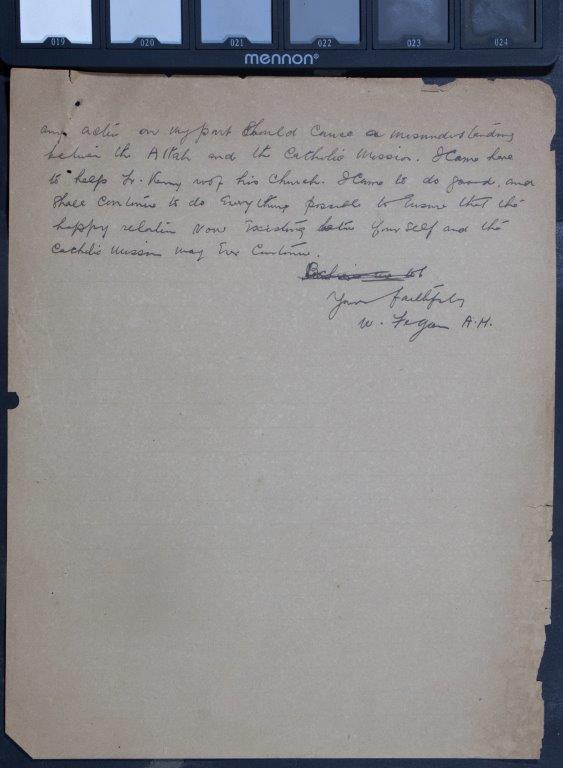 019 020 021 022 023 024
mennon®
any action on my part should cause a misunderstanding
between the Attah and the Catholic Mission. I came here
to help Fr. Kenny w of his Church. I came to do good, and
shall continue to do everything possible to ensure that the
happy relation now existing between yourself and the
Catholic Mission may ever continue.
Yours faithfully
W. Fegan A.M.